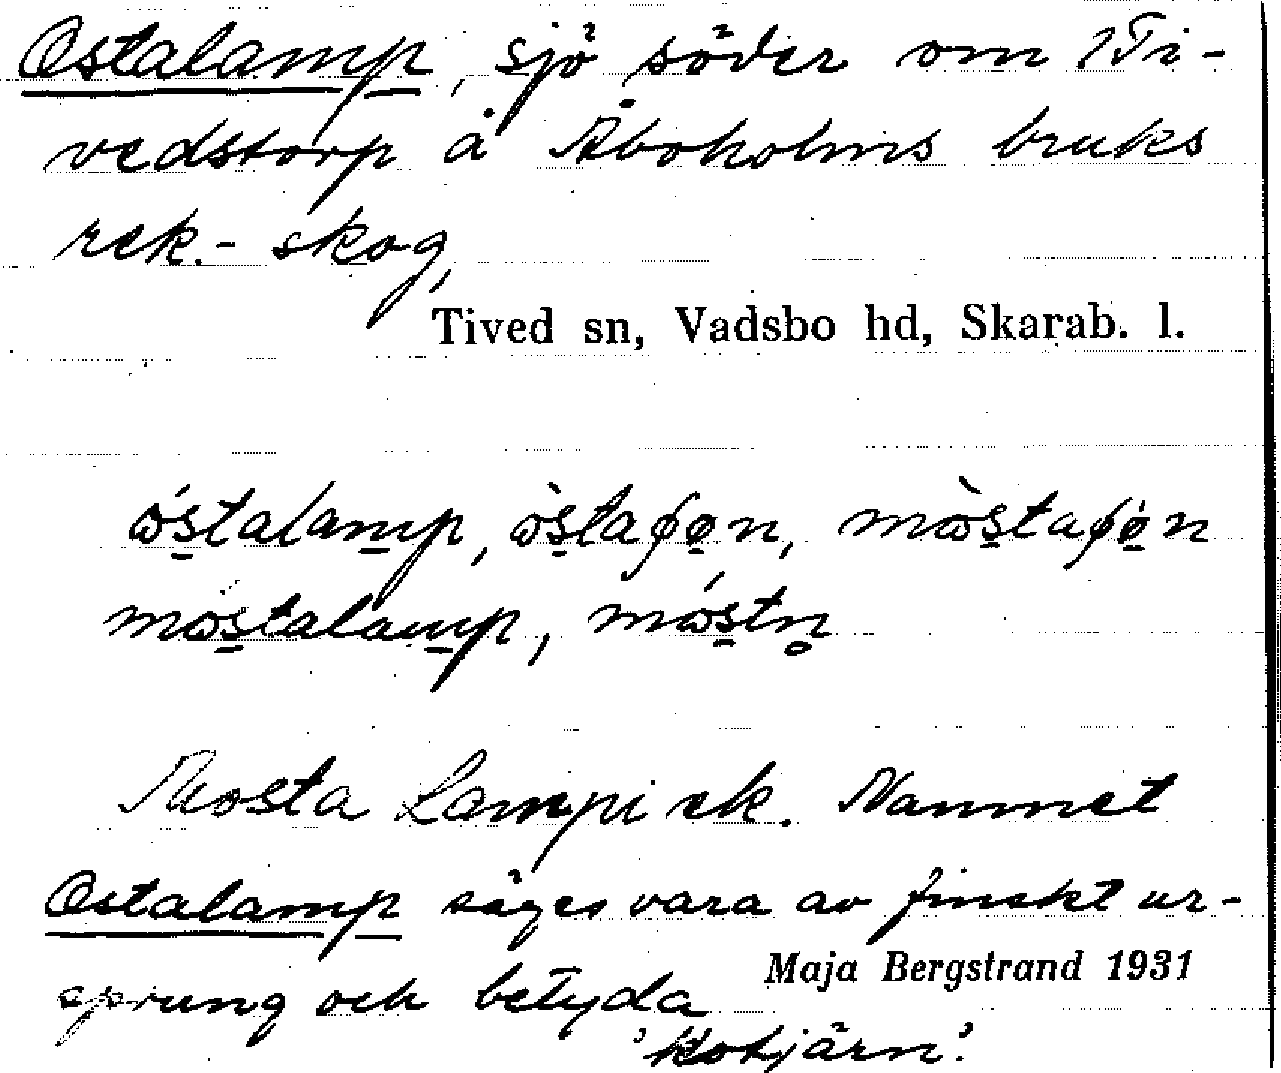 Ostalamp, sjö söder om Ti-
vedstorp å Aboholms bruks
rek.- skog,
Tived sn, Vadsbo hd, Skarab. l.
ɷ́s̱talam̱p, ɷ̀s̱taʃø̱n, mɷ̀s̱taʃø̱n
mɷ́s̱talam̱p, mɷ́s̱tn̥
Mosta Lampi ek. Namnet
Ostalamp säges vara av finskt ur-
sprung och betyda
Maja Bergstrand 1931
'Kotjärn'.